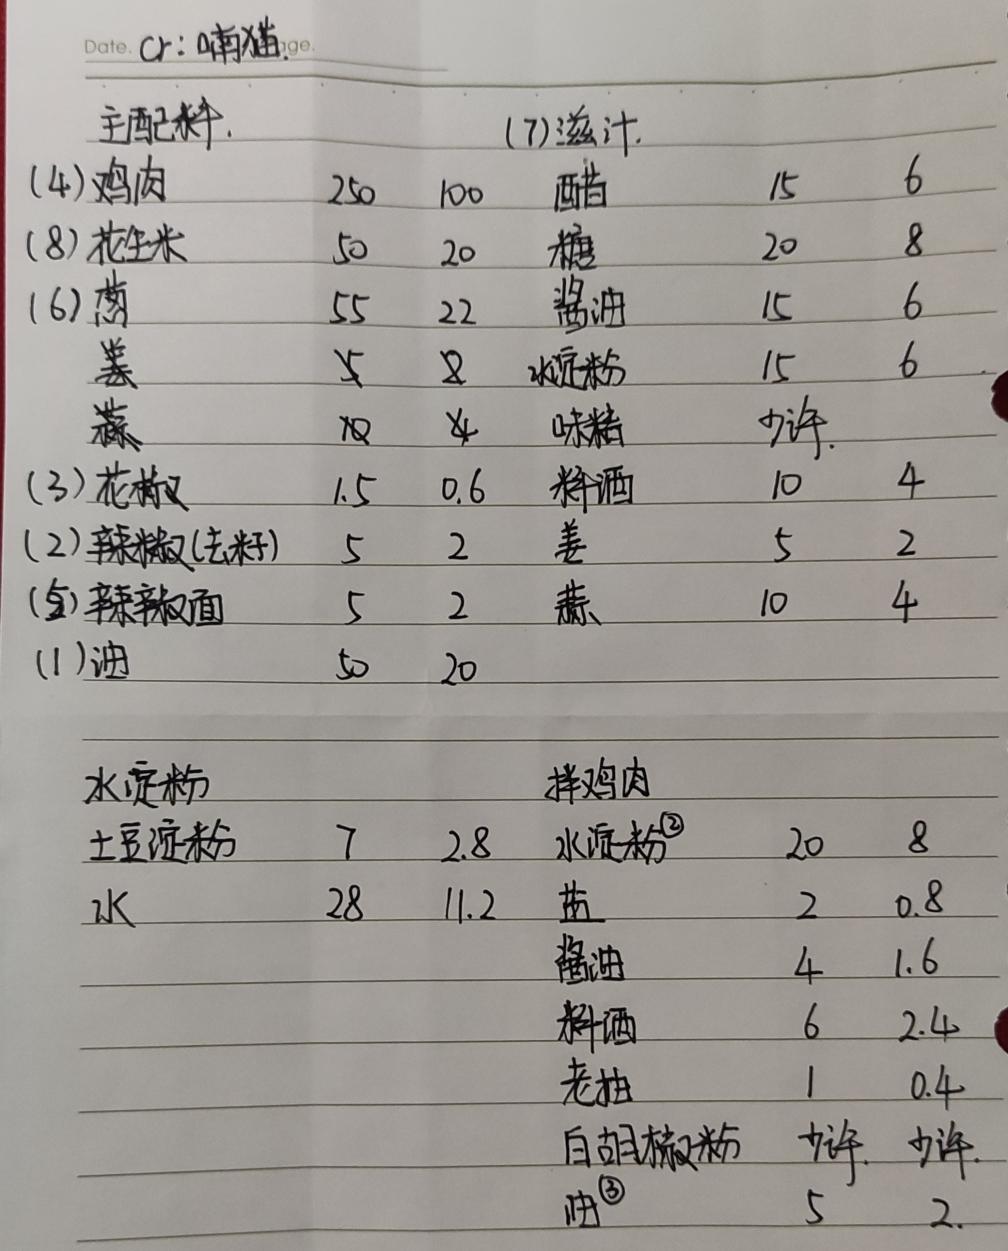 Date. Cr：喃猫. ge.
主配料.
(4) 鸡肉 250 100
(8) 花生米 50 20
(6) 葱 55 22
姜 5 2
蒜 10 4
(3) 花椒 1.5 0.6
(2) 辣椒(去籽) 5 2
(5) 辣椒面 5 2
(1) 油 50 20
(7) 滋汁.
醋 15 6
糖 20 8
酱油 15 6
水淀粉 15 6
味精 少许.
料酒 10 4
姜 5 2
蒜 10 4
水淀粉
土豆淀粉 7 2.8
水 28 11.2
拌鸡肉
水淀粉② 20 8
盐 2 0.8
酱油 4 1.6
料酒 6 2.4
老抽 1 0.4
白胡椒粉 少许. 少许.
油③ 5 2.